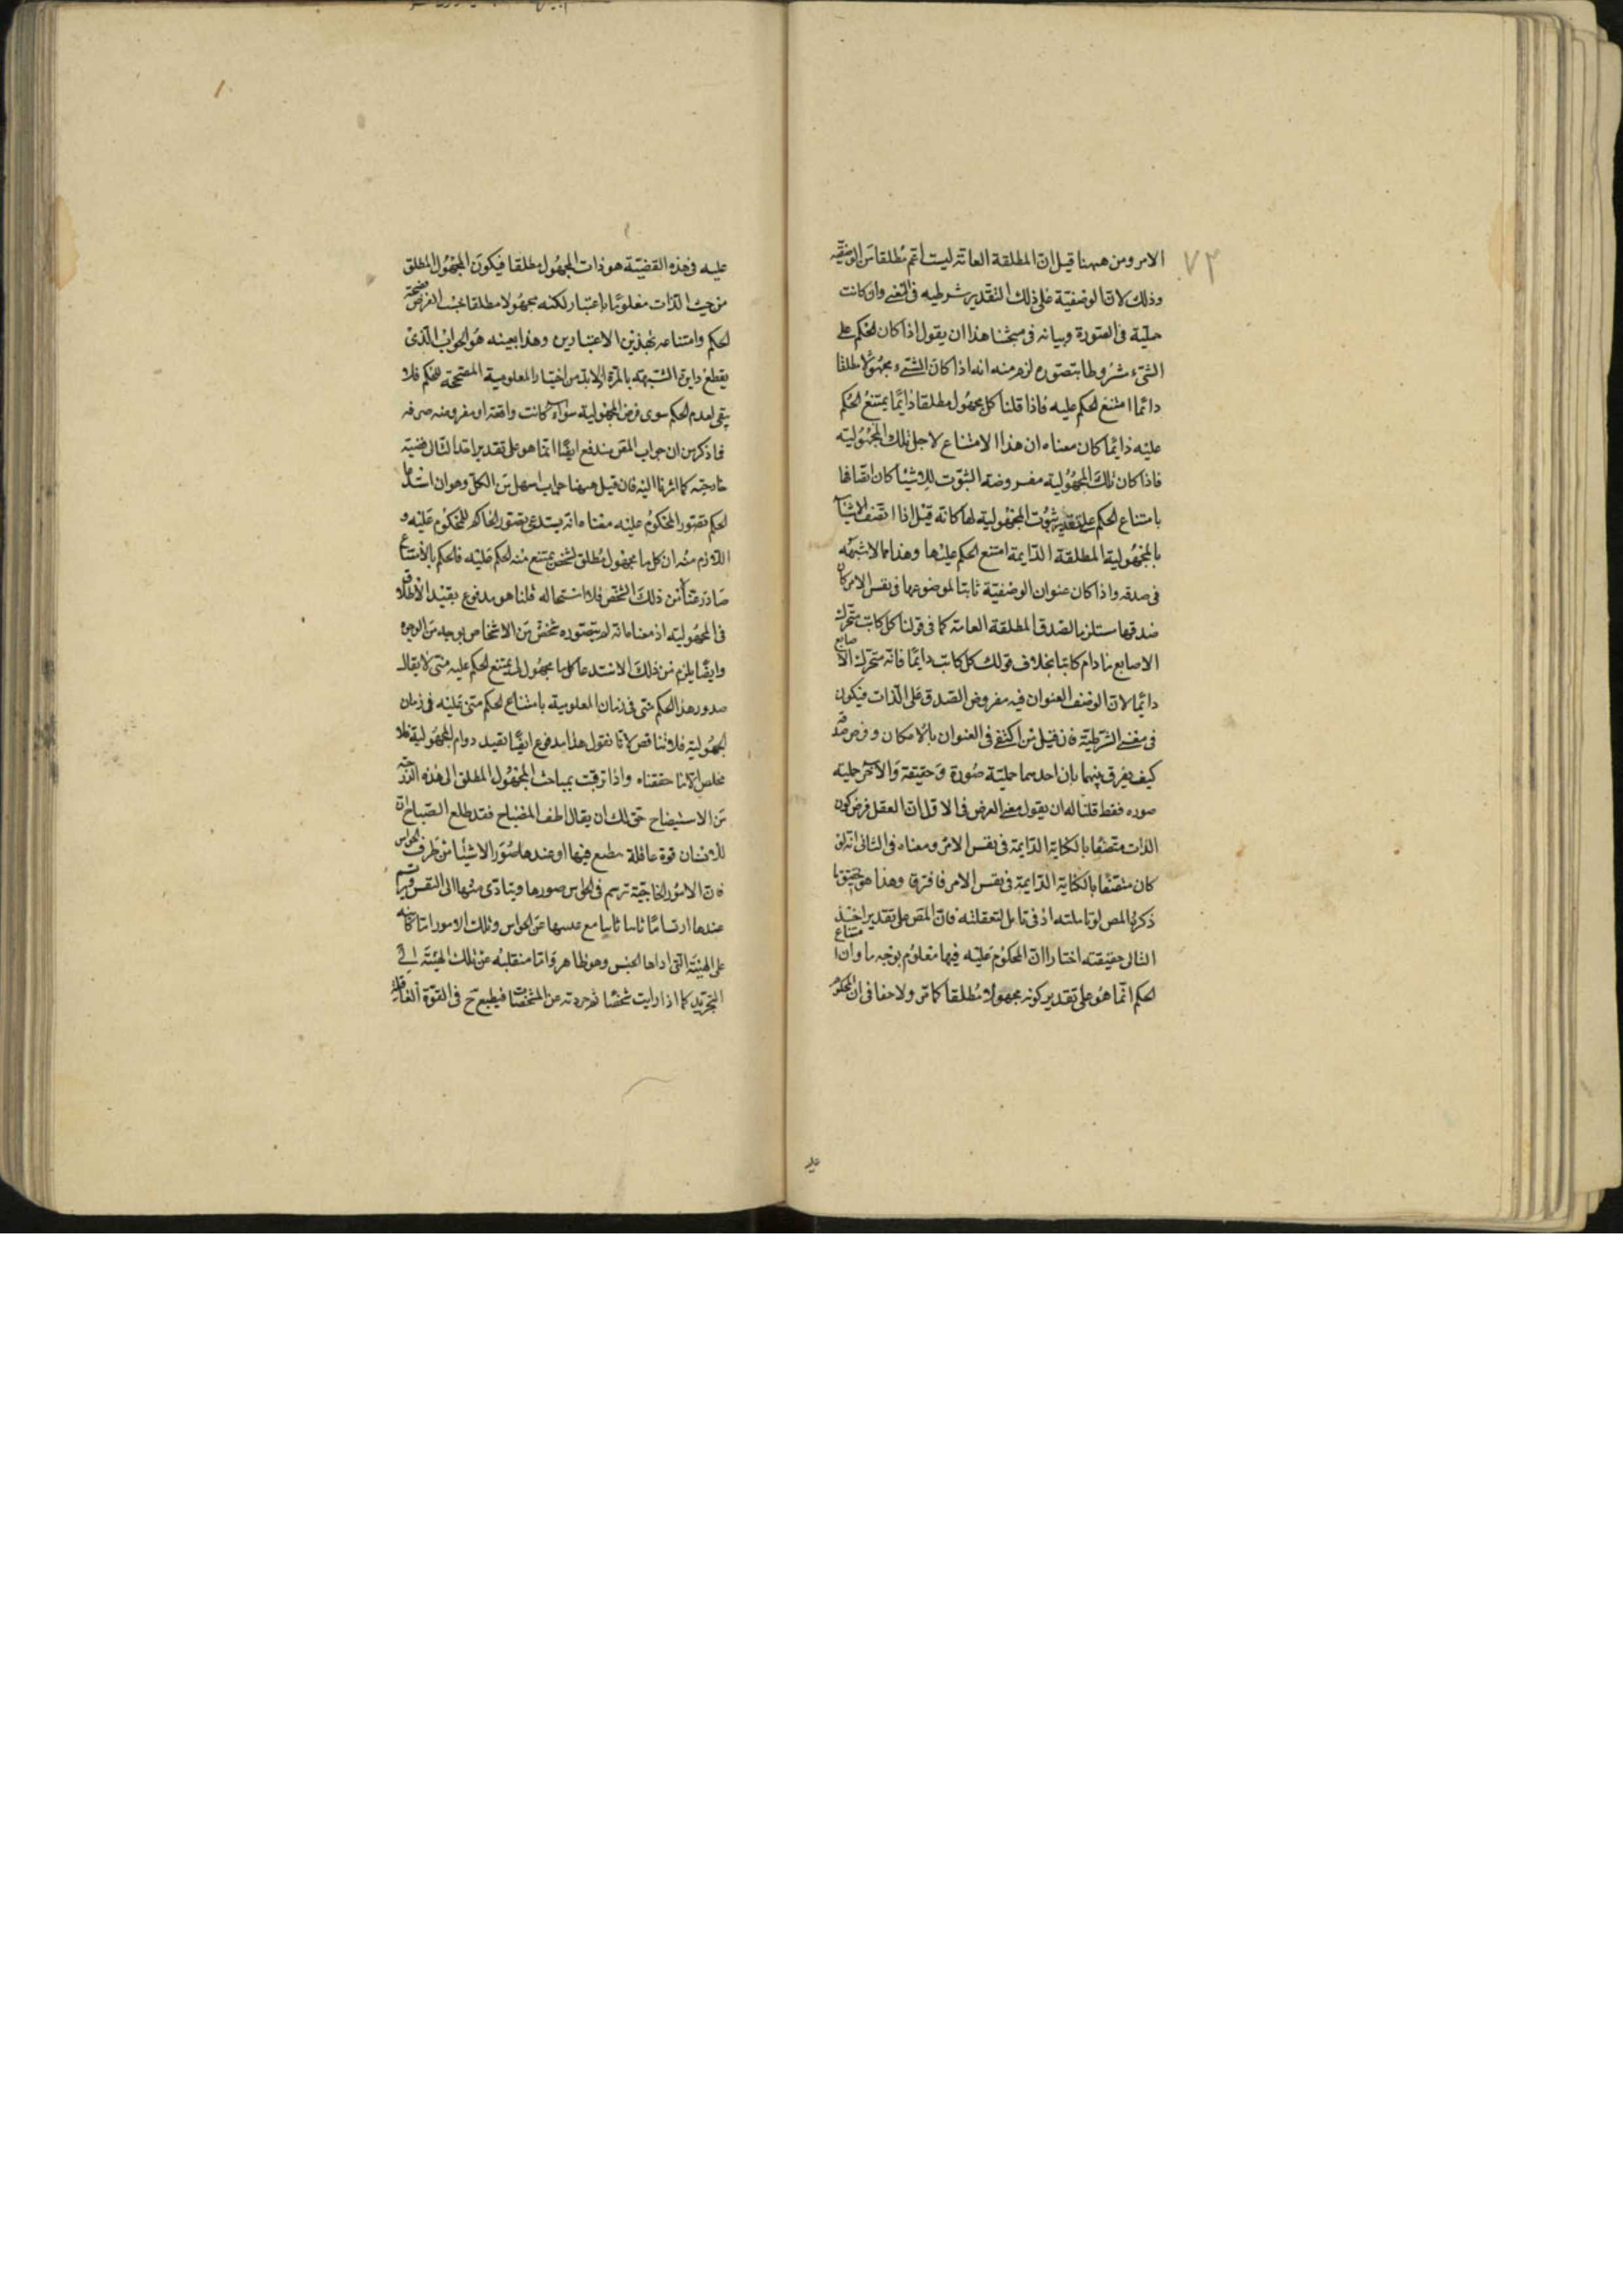 ٧٣
الامر ومن ههنا قيل ان المطلقة العامة ليست اعم مطلقا من الوصفية
وذلك لان الوصفية على ذلك التقدير شرطيه فى المعنى وان كانت
حملية فى الصورة وبيانه فى مبحثنا هذا ان يقول اذا كان الحكم على
الشىء مشروطا بتصوره لزم منه انه اذا كان الشىء مجهولا مطلقا
دائما امتنع الحكم عليه فاذا قلنا كل مجهول مطلقا دائما يمتنع الحكم
عليه دائما كان معناه ان هذا الامتناع لاجل تلك المجهولية
فاذا كان تلك المجهولية مفروضة الثبوت للاشيا كان اتصافها
بامتناع الحكم على تقدير ثبوت المجهولية لها كانه قيل اذا اتصف الاشيا
بالمجهولية المطلقة الدايمة امتنع الحكم عليها وهذا مما لا شبهه
فى صدقه واذا كان عنوان الوصفية ثابتا لموضوعها فى نفس الامر كان
صدقها مستلزما لصدق المطلقة العامة كما فى قولنا كل كاتب متحرك
الاصابع مادام كاتبا بخلاف قولك كل كاتب دايما فانه متحرك الاصابع
دائما لان الوصف العنوان فيه مفروض الصدق على الذات فيكون
فى معنى الشرطية فان قيل من اكتفى فى العنوان بالامكان وفرض
كيف يفرق بينهما بان احدهما حملية صورة وحقيقة والاخر حملية
صوره فقط قلنا له ان يقول معنى الفرض فى الاول ان العقل فرض كون
الذات متصفا بالكتابة الدايمة فى نفس الامر ومعناه فى الثانى انه لو
كان متصفا بالكتابة الدايمة فى نفس الامر فافترقا وهذا هو تحقيق ما
ذكره المص لو تاملته اذ فى تامل لتعقلته فان المص على تقدير اخذ
التالى حقيقته اختار ان المحكوم عليه فيها معلوم بوجه ما وان امتناع
الحكم انما هو على تقدير كونه مجهولا مطلقا كما مر ولا خفا فى ان المحكوم
عليه
عليه فى هذه القضية هو ذات المجهول مطلقا فيكون المجهول المطلق
من حيث الذات معلوما باعتبار لكنه مجهولا مطلقا بحسب الفرض فصحة
الحكم وامتناعه بهذين الاعتبارين وهذا بعينه هو الجواب الذى
يقطع دابر الشبهة بالمرة اذ لا بد من اختيار المعلومية المصححة للحكم فلا
يبقى لعدم الحكم سوى فرض المجهولية سواء كانت واقعة او مفروضه صرفه
فما ذكر من ان جواب المص مندفع ايضا انما هو على تقدير اخذ التالى قضية
خارجية كما اشرنا اليه فان قيل ههنا جواب اسهل من الكل وهو ان استدعا
الحكم تصور المحكوم عليه معناه انه يستدعى تصور الحاكم للمحكوم عليه و
اللازم منه ان كل ما مجهول مطلق لشخص يمتنع منه الحكم عليه فالحكم بالامتناع
صادر عنا من ذلك الشخص فلا استحاله قلنا هو مدفوع بقيد الاطلاق
فى المجهولية اذ معناه انه لم يتصوره شخص من الاشخاص بوجه من الوجوه
وايضا يلزم من ذلك الاستدعا كل ما مجهول لى يمتنع الحكم عليه منى لا يقال
صدور هذا الحكم منى فى زمان المعلومية بامتناع الحكم منى عليه فى زمان
المجهولية فلا تناقض لانا نقول هذا مدفوع ايضا بقيد دوام المجهولية فلا
مخلص الا ما حققناه واذا ترقت بمباحث المجهول المطلق الى هذه الدرجة
من الاستيضاح حق لك ان يقال اطف المصباح فقد طلع الصباح
للانسان قوة عاقلة ينطبع فيها او عندها صور الاشيا من طرف الحواس
فان الامور الخارجية ترتسم فى الحواس صورها ويتادى منها الى النفس
عندها ارتساما ثانيا مع غيبتها عن الحواس وتلك الامور اما
على الهيئة التى اداها الحس وهو ظاهر واما منقلبه عن تلك الهيئة الى
التجريد كما اذا رايت شخصا ثم جردته عن المشخصات فينطبع ح فى القوة العاقلة